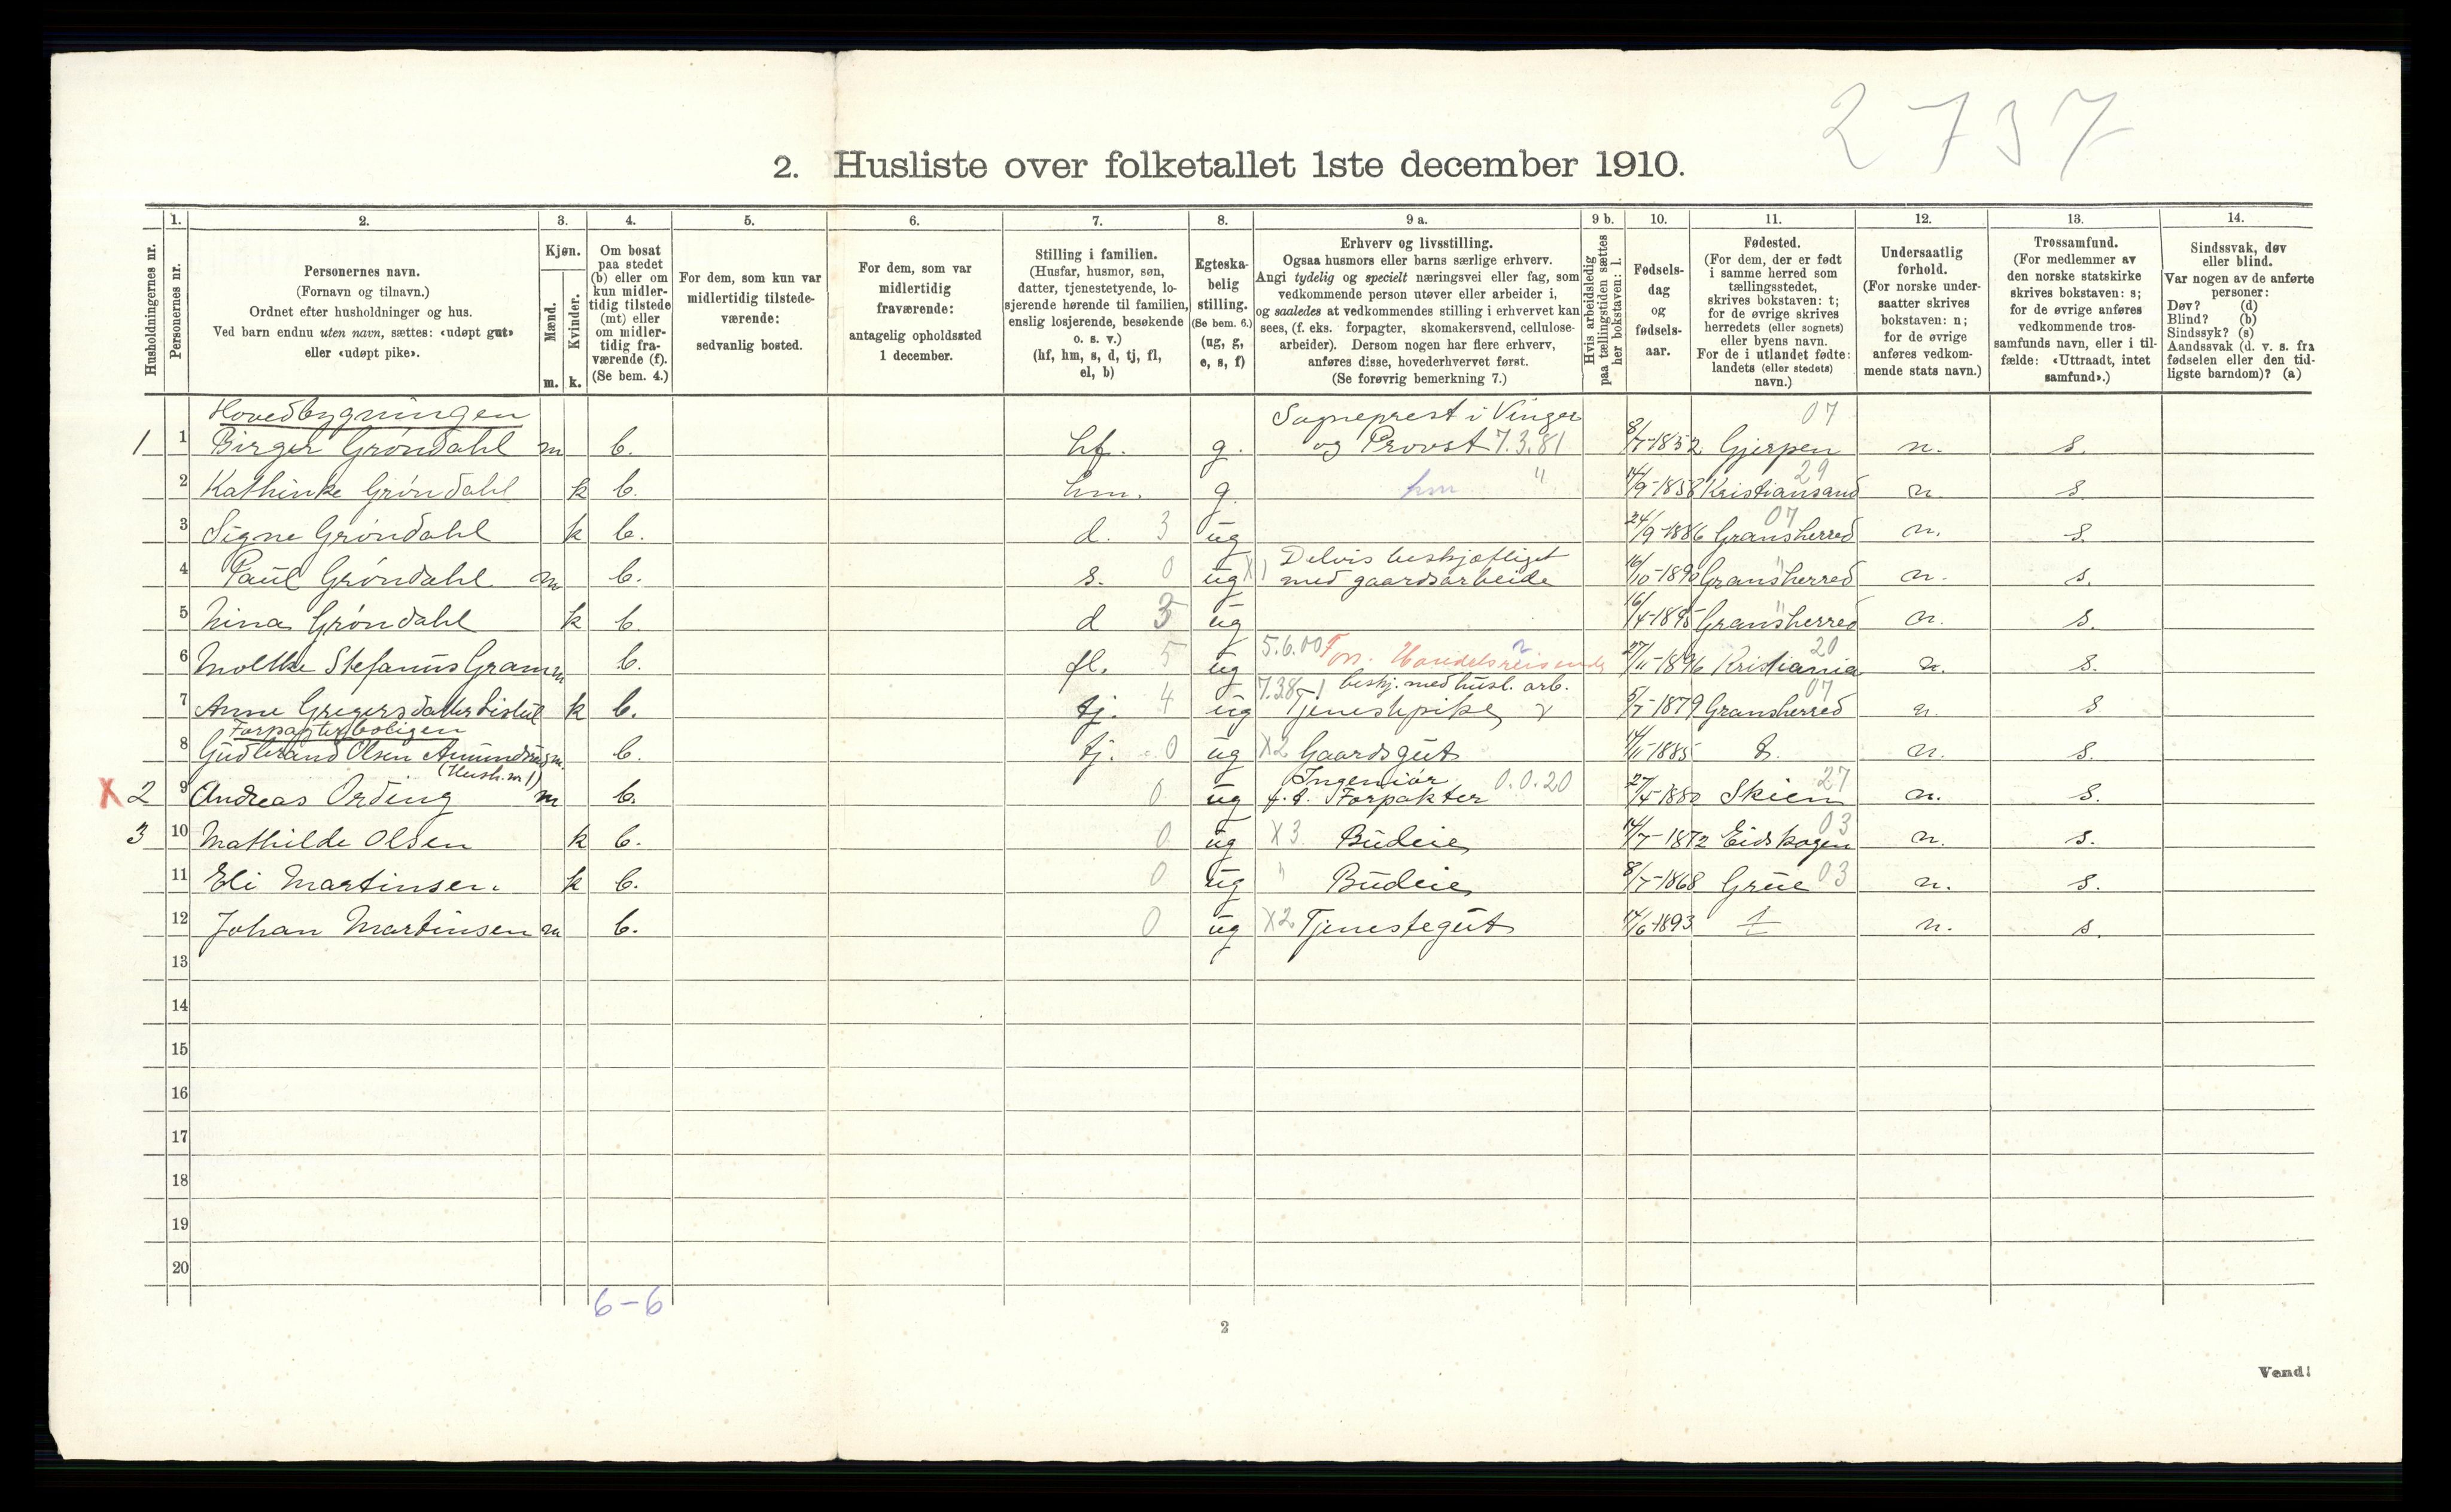 2737
2. Husliste over folketallet 1ste december 1910.
Husholdningernes nr.
1.
Personernes nr.
2.
Personernes navn.
(Fornavn og tilnavn.)
Ordnet efter husholdninger og hus.
Ved barn endnu uten navn, sættes: «udøpt gut»
eller «udøpt pike».
3.
Kjøn.
Mænd.
Kvinder.
m. k.
4.
Om bosat
paa stedet
(b) eller om
kun midler-
tidig tilstede
(mt) eller
om midler-
tidig fra-
værende (f).
(Se bem. 4.)
5.
For dem, som kun var
midlertidig tilstede-
værende:
sedvanlig bosted.
6.
For dem, som var
midlertidig
fraværende:
antagelig opholdssted
1 december.
7.
Stilling i familien.
(Husfar, husmor, søn,
datter, tjenestetyende, lo-
sjerende hørende til familien,
enslig losjerende, besøkende
o. s. v.)
(hf, hm, s, d, tj, fl,
el, b)
8.
Egteska-
belig
stilling.
(Se bem. 6.)
(ug, g,
e, s, f)
9 a.
Erhverv og livsstilling.
Ogsaa husmors eller barns særlige erhverv.
Angi tydelig og specielt næringsvei eller fag, som
vedkommende person utøver eller arbeider i,
og saaledes at vedkommendes stilling i erhvervet kan
sees, (f. eks. forpagter, skomakersvend, cellulose-
arbeider). Dersom nogen har flere erhverv,
anføres disse, hovederhvervet først.
(Se forøvrig bemerkning 7.)
9 b.
Hvis arbeidsledig
paa tællingstiden sættes
her bokstaven: l.
10.
Fødsels-
dag
og
fødsels-
aar.
11.
Fødested.
(For dem, der er født
i samme herred som
tællingsstedet,
skrives bokstaven: t;
for de øvrige skrives
herredets (eller sognets)
eller byens navn.
For de i utlandet fødte:
landets (eller stedets)
navn.)
12.
Undersaatlig
forhold.
(For norske under-
saatter skrives
bokstaven: n;
for de øvrige
anføres vedkom-
mende stats navn.)
13.
Trossamfund.
(For medlemmer av
den norske statskirke
skrives bokstaven: s;
for de øvrige anføres
vedkommende tros-
samfunds navn, eller i til-
fælde: «Uttraadt, intet
samfund».)
14.
Sindssvak, døv
eller blind.
Var nogen av de anførte
personer:
Døv? (d)
Blind? (b)
Sindssyk? (s)
Aandssvak (d. v. s. fra
fødselen eller den tid-
ligste barndom)? (a)
Hovedbygningen Sogneprest i Vinger 07
1 1 Birger Grøndahl m b. hf. g. og Provst 7.3.81 8/7-1852 Gjerpen n. s.
2 Kathinke Grøndahl k b. hm. g. hm " 14/9-1858 Kristiansand 29 n. s.
3 Signe Grøndahl k b. d. 3 ug 24/9-1886 Gransherred 07 n. s.
4 Paul Grøndahl m b. s. 0 ug X1 Delvis beskjæftiget
med gaardsarbeide 16/10-1890 Gransherred " n. s.
5 Nina Grøndahl k b. d 3 ug 16/4-1895 Gransherred " n. s.
6 Moltke Stefanus Gram m b. fl. 5 ug 5.6.00 Fors. Handelsreisende 27/11-1896 Kristiania 20 n. s.
7.38 beskj. med husl. arb.
7 Anne Gregersdatter Listul k b. tj. 4 ug Tjenestpike 5/7-1879 Gransherred 07 n. s
Forpagterboligen
8 Gudbrand Olsen Amundrud m. b. tj. 0 ug X2 Gaardsgut 14/11-1885 t. n. s.
(Hush. nr 1)
X 2 9 Andreas Ording m b. 0 ug Ingeniør 0.0.20
f. t. Forpakter 27/4-1880 Skien 27 n. s.
3 10 Mathilde Olsen k b. 0 ug X3 Budeie 14/7-1872 Eidskogen 03 n. s.
11 Eli Martinsen k b. 0 ug " Budeie 8/7-1868 Grue 03 n. s.
12 Johan Martinsen m b. 0 ug X2 Tjenestegut 14/6-1893 t n. s.
13
14
15
16
17
18
19
20
6-6
2
Vend!